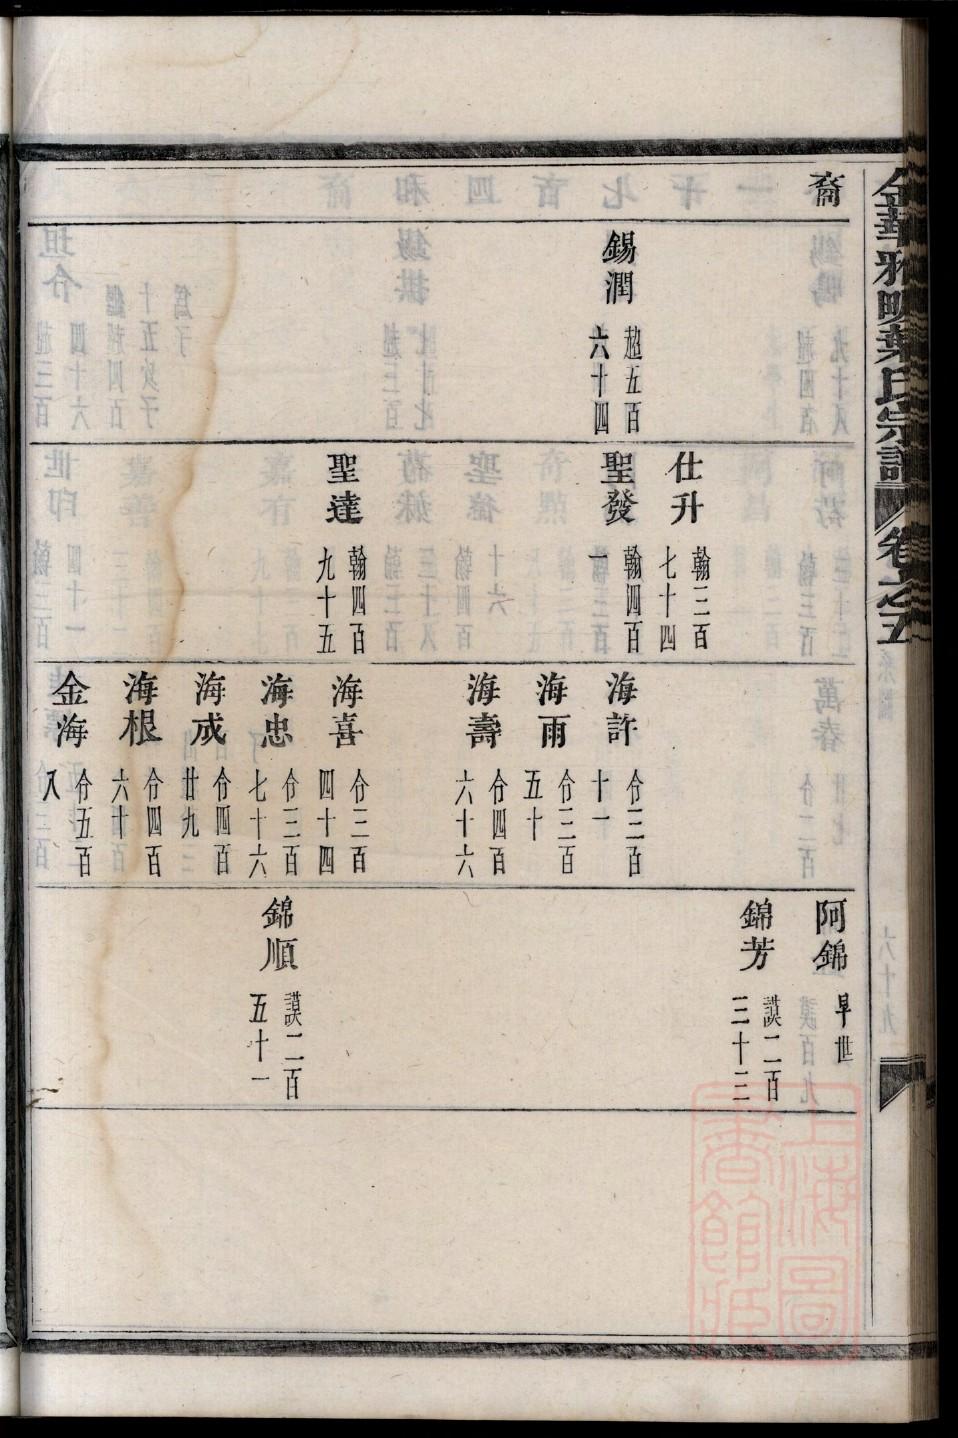 金華雅畈葉氏宗譜 卷之五
裔
錫潤 超五百六十四
仕升 翰三百七十四
聖發 翰四百一
聖達 翰四百九十五
海許 令三百十一
海雨 令三百五十
海壽 令四百六十六
海喜 令三百四十四
海忠 令三百七十六
海成 令四百廿九
海根 令四百六十
金海 令五百八
阿錦 早世
錦芳 謨二百三十三
錦順 謨二百五十一
上海圖書館藏